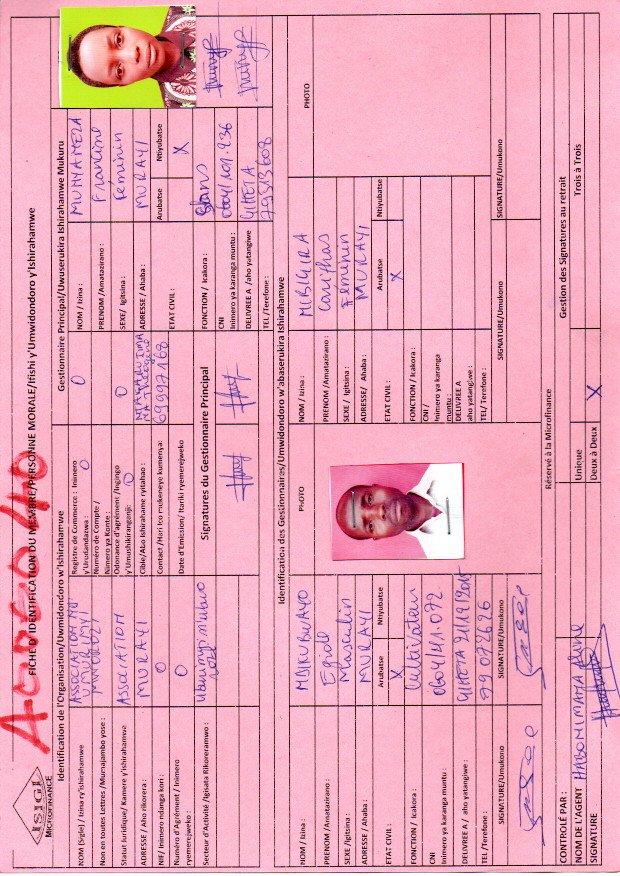 ISIGI
MICROFINANCE
FICHE D'IDENTIFICATION DU MEMBRE/PERSONNE MORALE/Ifishi y'Umwidondoro y'Ishirahamwe
Identification de l'Organisation/Uwmidondoro w'Ishirahamwe
NOM (Sigle) / Izina ry'ishirahamwe
ASSOCIATION
Non en toutes Lettres /Mumajambo yose :
Statut Juridique/ Kamere y'ishirahamwe
ASSOCIATION
ADRESSE / Aho rikorera :
MURAYI
NIF/ Inimero ndanga kori :
O
Numéro d'Agrément / Inimero
ryemerejweko :
O
Secteur d'Activité /Igisata Rikoreramwo :
Registre de Commerce : Inimero
y'Urudandazwa :
O
O
Numéro de Compte /
Nimero ya Konte :
Odonance d'agrément /Ingingo
y'Umushikiranganji:
O
O
Cible/Abo Ishirahame ryitaho :
Contact /Nari ico mukeneye kumenya:
69997168
Date d'Emission/ Itariki ryemerejweko
Signatures du Gestionnaire Principal
Gestionnaire Principal/Uwuserukira Ishirahamwe Mukuru
NOM / Izina :
MUNYAMEZA
PRENOM /Amatazirano :
Francine
SEXE/ Igitsina :
Féminin
ADRESSE / Ahaba :
MURAYI
ETAT CIVIL :
Arubatse
Ntiyubatse
X
FONCTION / Icakora :
CNI
Inimero ya karanga muntu :
0604/101.236
DELIVREE A /aho yatangiwe
GIHETA
TEL /Terefone :
79513608
Identification des Gestionnaires/Umwidondoro w'abaserukira Ishirahamwe
NOM / Izina :
PRENOM /Amatazirano :
Egide
SEXE /Igitsina :
Masculin
ADRESSE / Ahaba :
MURAYI
ETAT CIVIL :
Arubatse
Ntiyubatse
X
FONCTION / Icakora :
Cultivateur
CNI
Inimero ya karanga muntu :
0604/41.072
DELIVREE A / aho yatangiwe :
GIHETA
TEL / Terefone :
79 072626
SIGNATURE/Umukono
SIGNATURE/Umukono
PHOTO
NOM / Izina :
PRENOM /Amatazirano :
SEXE / Igitsina :
Féminin
ADRESSE/ Ahaba :
MURAYI
ETAT CIVIL :
Arubatse
Ntiyubatse
X
FONCTION / Icakora :
CNI /
Inimero ya karanga
muntu :
DELIVREE A
aho yatangiwe :
TEL/ Terefone :
SIGNATURE/Umukono
SIGNATURE/Umukono
PHOTO
Réservé à la Microfinance
CONTROLÉ PAR :
NOM DE L'AGENT
SIGNATURE
Gestion des Signatures au retrait
Unique
Deux à Deux
X
Trois à Trois